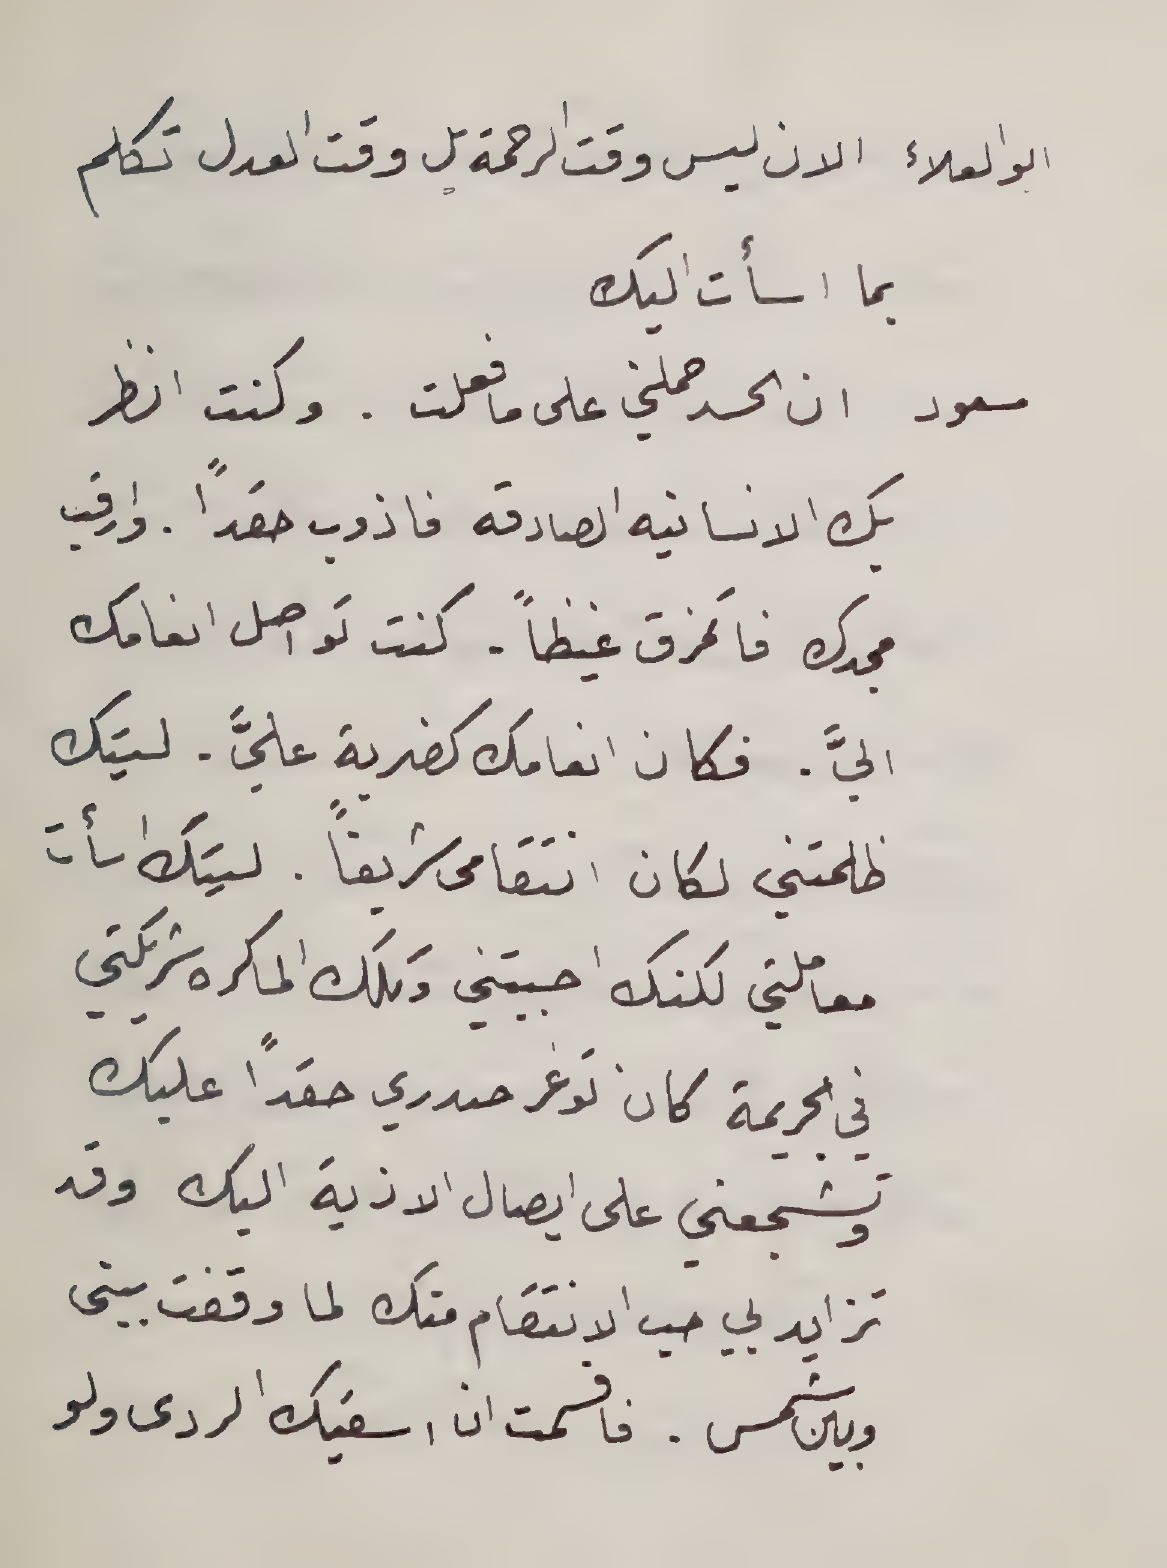 ابو العلاء الان ليس وقت الرحمة بل وقت العدل تكلم
بما اسأت اليك
مسعود ان الحسد حملني على ما فعلت . وكنت انظر
بك الانسانيه الصادقه فاذوب حقداً . وارقب
مجدك فاتمزق غيظاً . كنت تواصل انعامك
اليَّ . فكان انعامك كضربة عليَّ . ليتك
ظلمتني لكان انتقامى شريفاً . ليتك اسأت
معاملتي لكنك احببتني وتلك الماكره شريكتي
في الجريمة كان توغر صدري حقداً عليك
وتشجعني على ايصال الاذية اليك وقد
تزايد بي حب الانتقام منك لما وقفت بينى
وبين شمس . فاقسمت ان اسقيك الردى ولو